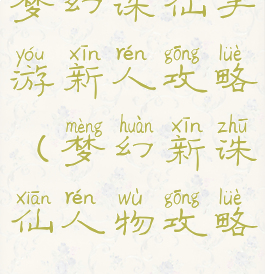 梦幻诛仙手
yóu xīn rén gōng lüè
游新人攻略
mèng huàn xīn zhū
（梦幻新诛
xiān rén wù gōng lüè
仙人物攻略